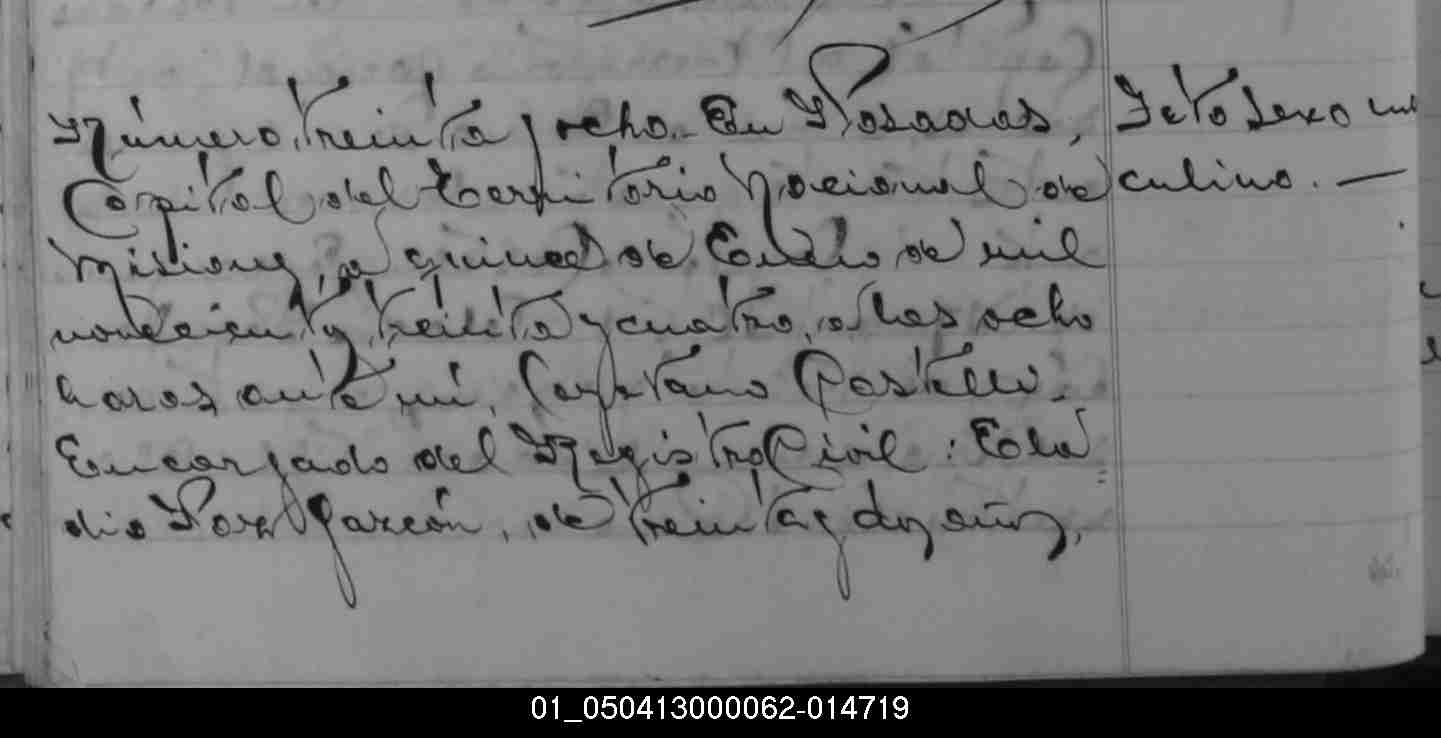 Número treinta y ocho. En Posadas,
Capital del Territorio Nacional de
Misiones, a quince de Enero de mil
novecientos treinta y cuatro, a las ocho
horas ante mí, Cayetano Castelli.
Encargado del Registro Civil: Ela
dio Garzón, de treinta y dos años,
Feto sexo mas
culino. —
01_050413000062-014719